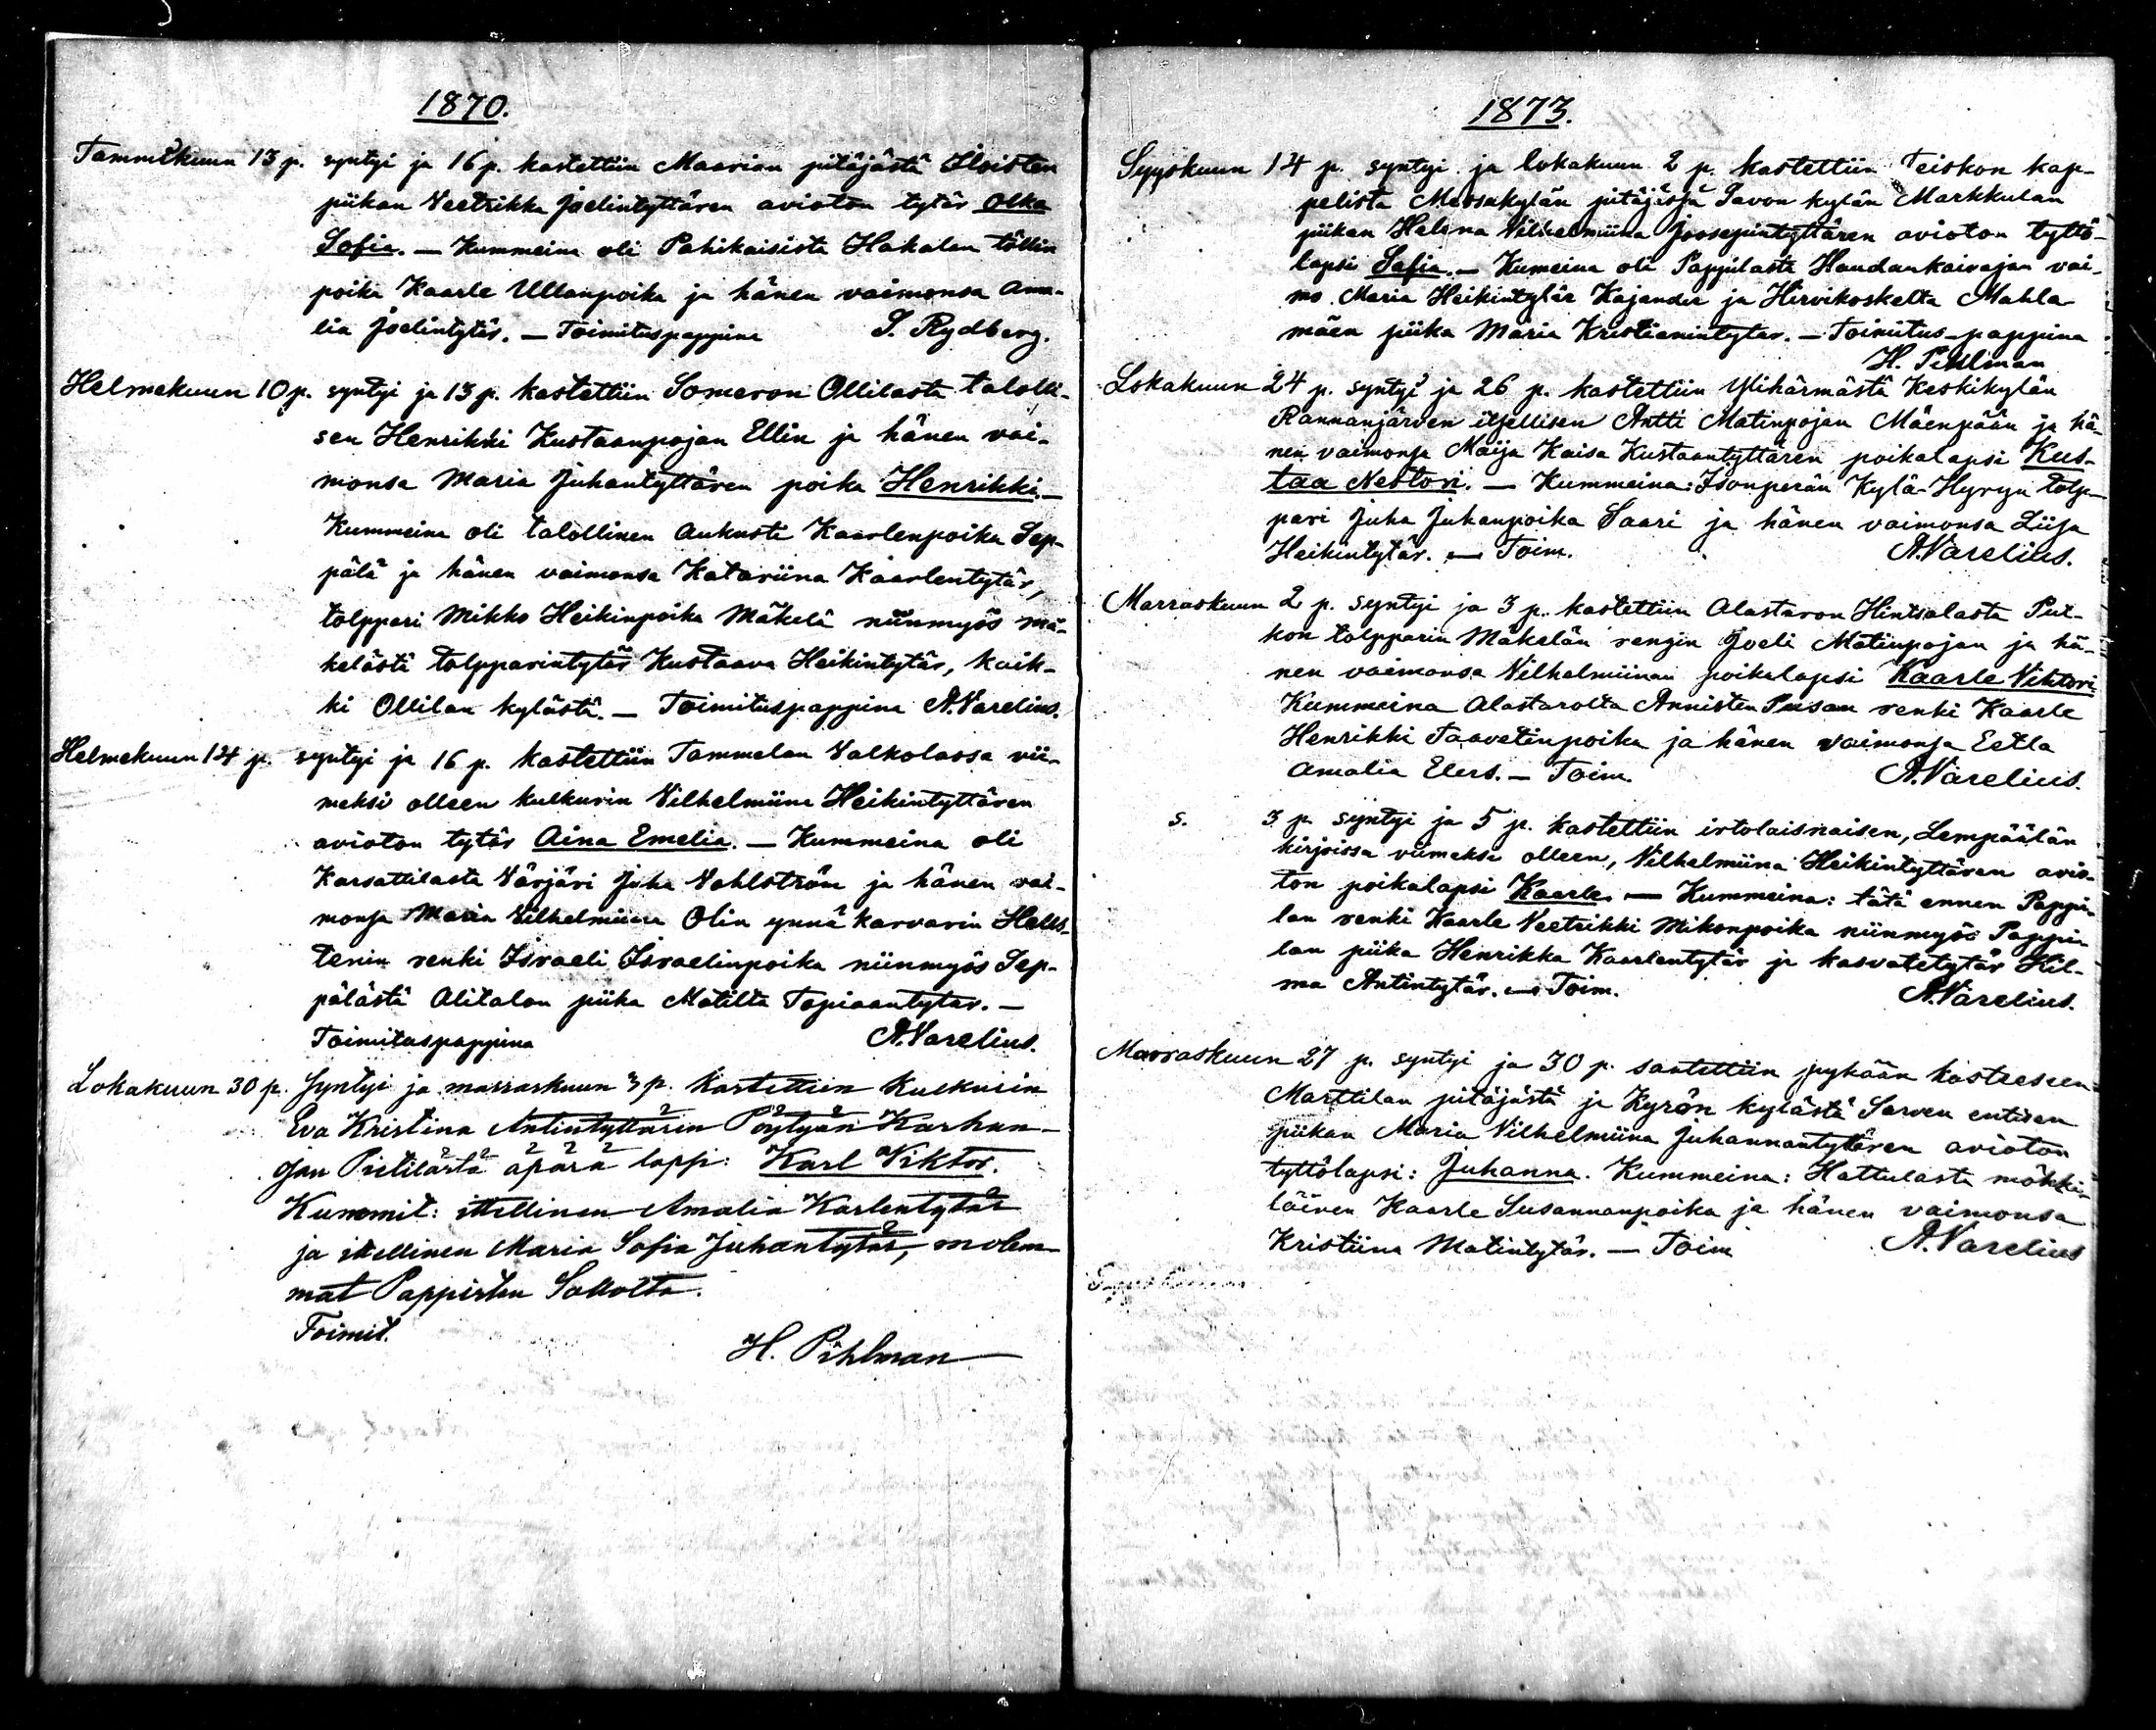 1870.
Tammikuun 13 p. syntyi ja 16 p. kastettiin Maarian pitäjästä Ilvisten
piikan Veetrikka Joelintyttären avioton tytär Olka
Sofia. — Kummeina oli Pahikaisista Hakalan töllin
poika Kaarle Ullanpoika ja hänen vaimonsa Ama-
lia Joelintytär. — Toimituspappina S. Rydberg.
Helmekuun 10 p. syntyi ja 13 p. kastettiin Someron Ollilasta talolli-
sen Henrikki Kustaanpojan Ellin ja hänen vai-
monsa Maria Juhantyttären poika Henrikki. —
Kummeina oli talollinen Aukusti Kaarlenpoika Sep-
pälä ja hänen vaimonsa Katariina Kaarlentytär,
tolppari Mikko Heikinpoika Mäkelä niinmyös Mä-
kelästä tolpparintytär Kustaava Heikintytär, kaik-
ki Ollilan kylästä. — Toimituspappina A. Varelius.
Helmekuun 14 p. syntyi ja 16 p. kastettiin Tammelan Valkolassa vii-
meksi olleen kulkurin Vilhelmiina Heikintyttären
avioton tytär Aina Emelia. — Kummeina oli
Karsattilasta Värjäri Juha Vahlström ja hänen vai-
monsa Maria Vilhelmiina Olin ynnä karvarin Hells-
tenin renki Israeli Israelinpoika niinmyös Sep-
pälästä Alitalon piika Matilta Tapiaantytär. —
Toimituspappina A. Varelius.
Lokakuun 30 p. syntyi ja marraskuun 3 p. kastettiin kulkurin
Eva Kristina Antintyttärin Pöytyän Karhun-
ojan Pietilästä äpärä lapsi: Karl Viktor.
Kummit: itellinen Amalia Karlentytär
ja itellinen Maria Sofia Juhantytär, molem-
mat Pappisten Sallolta.
Toimit.
H. Pihlman
1873.
Syyskuun 14 p. syntyi ja lokakuun 2 p. kastettiin Teiskon kap-
pelista Messukylän pitäjässä Pavon kylän Markkulan
piikan Helena Vilhelmiina Joosepintyttären avioton tyttö-
lapsi Sofia. — Kumeina oli Pappilasta Haudankaivajan vai-
mo Maria Heikintytär Kajander ja Hirvikoskelta Mahla-
mäen piika Maria Kristianintytar. — Toimitus-pappina
H. Pihlman
Lokakuun 24 p. syntyi ja 26 p. kastettiin Ylihärmästä Keskikylän
Rannanjärven itsellisen Antti Matinpojan Mäenpään ja hä-
nen vaimonsa Maija Kaisa Kustaantyttären poikalapsi Kus-
taa Nestori. — Kummeina: Isonperän Kylä-Hyryn tolp-
pari Juha Juhanpoika Saari ja hänen vaimonsa Liisa
Heikintytär. — Toim. A. Varelius.
Marraskuun 2 p. syntyi ja 3 p. kastettiin Alastaron Hintsalasta Put-
kon tolpparin Mäkelän rengin Joeli Matinpojan ja hä-
nen vaimonsa Vilhelmiinan poikalapsi Kaarle Vihtori.
Kummeina AlastaroltaÄnnisten Pusan renki Kaarle
Henrikki Taavetinpoika ja hänen vaimonsa Eetla
Amalia Elers. — Toim. A. Varelius.
s. 3 p. syntyi ja 5 p. kastettiin irtolaisnaisen, Lempäälän
kirjoissa viimeksi olleen, Vilhelmiina Heikintyttären avio-
ton poikalapsi Kaarle. — Kummeina: tätä ennen Pappi-
lan renki Kaarle Veetrikki Mikonpoika niinmyös Pappi-
lan piika Henrikka Kaarlentytär ja kasvatetytär Hil-
ma Antintytär. — Toim. A. Varelius.
Marraskuun 27 p. syntyi ja 30 p. saatettiin pyhään kasteeseen
Marttilan pitäjästä ja Kyrön kylästä Sarven entisen
piikan Maria Vilhelmiina Juhannantytären avioton
tyttölapsi: Juhanna. Kummeina: Hattulasta mökki-
läinen Kaarle Susannanpoika ja hänen vaimonsa
Kristiina Matintytär. — Toim A. Varelius